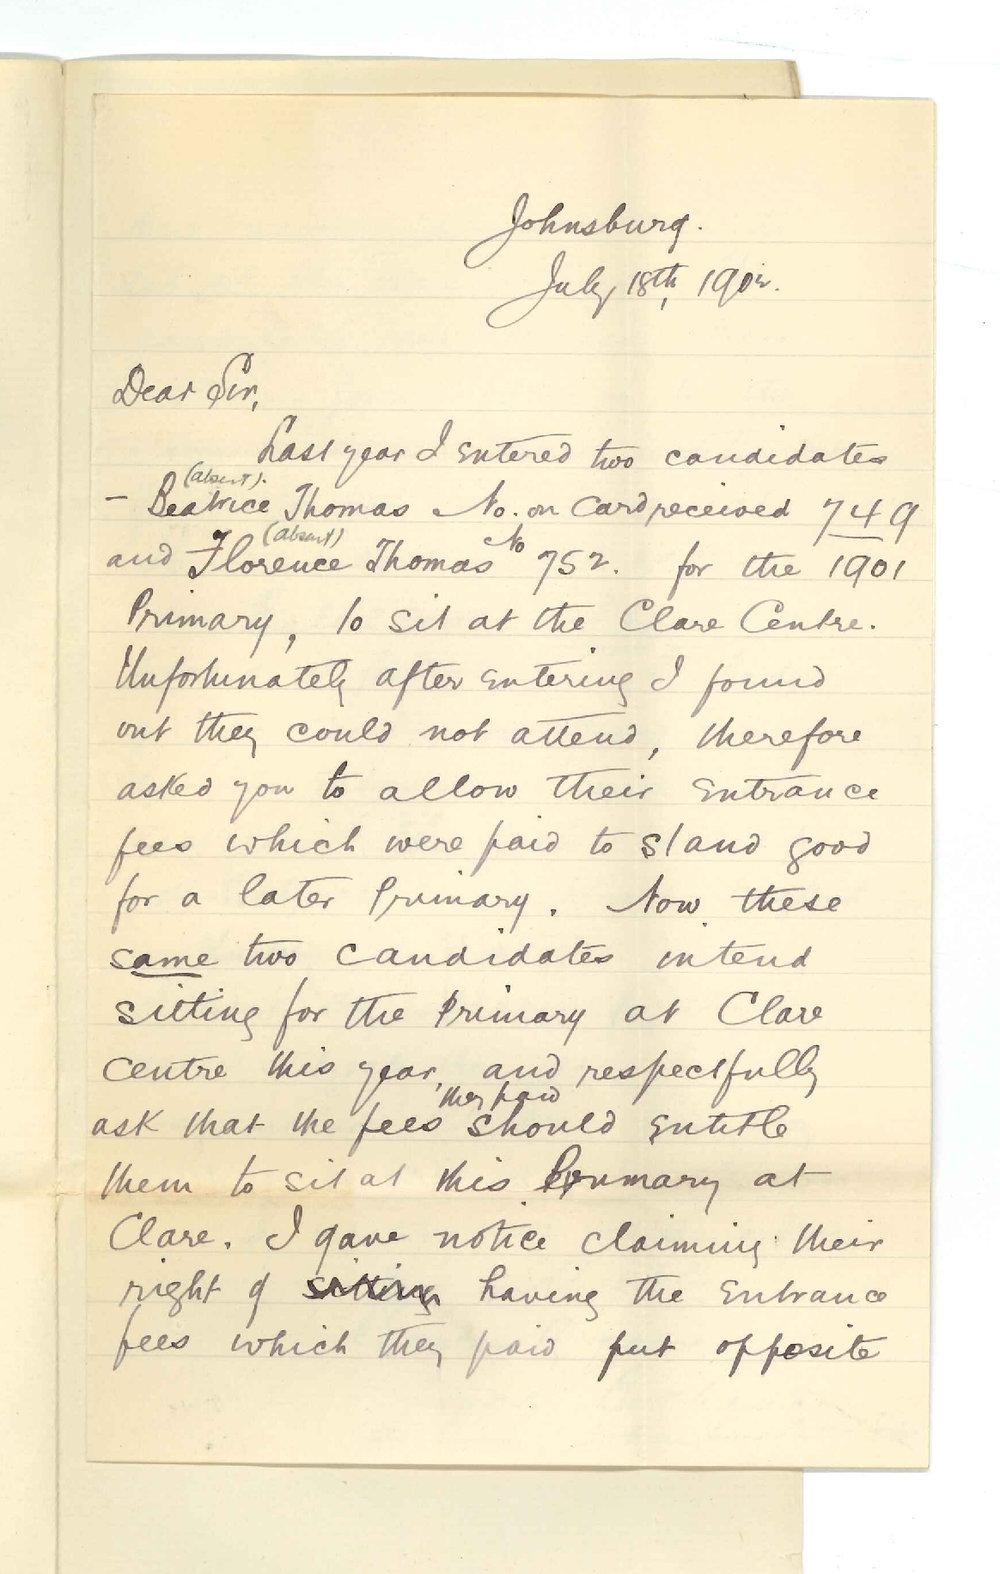 Johnsburg.
July 18th, 1902.
Dear Sir,
Last year I entered two candidates
(absent).
– Beatrice Thomas No. on Card received 749
(absent)
and Florence Thomas No 752. for the 1901
Primary, to sit at the Clare Centre.
Unfortunately after entering I found
out they could not attend, therefore
asked you to allow their entrance
fees which were paid to stand good
for a later Primary. Now these
same two candidates intend
sitting for the Primary at Clare
Centre this year, and respectfully
they paid
ask that the fees should entitle
them to sit at this Primary at
Clare. I gave notice claiming their
right of sitting having the entrance
fees which they paid put opposite